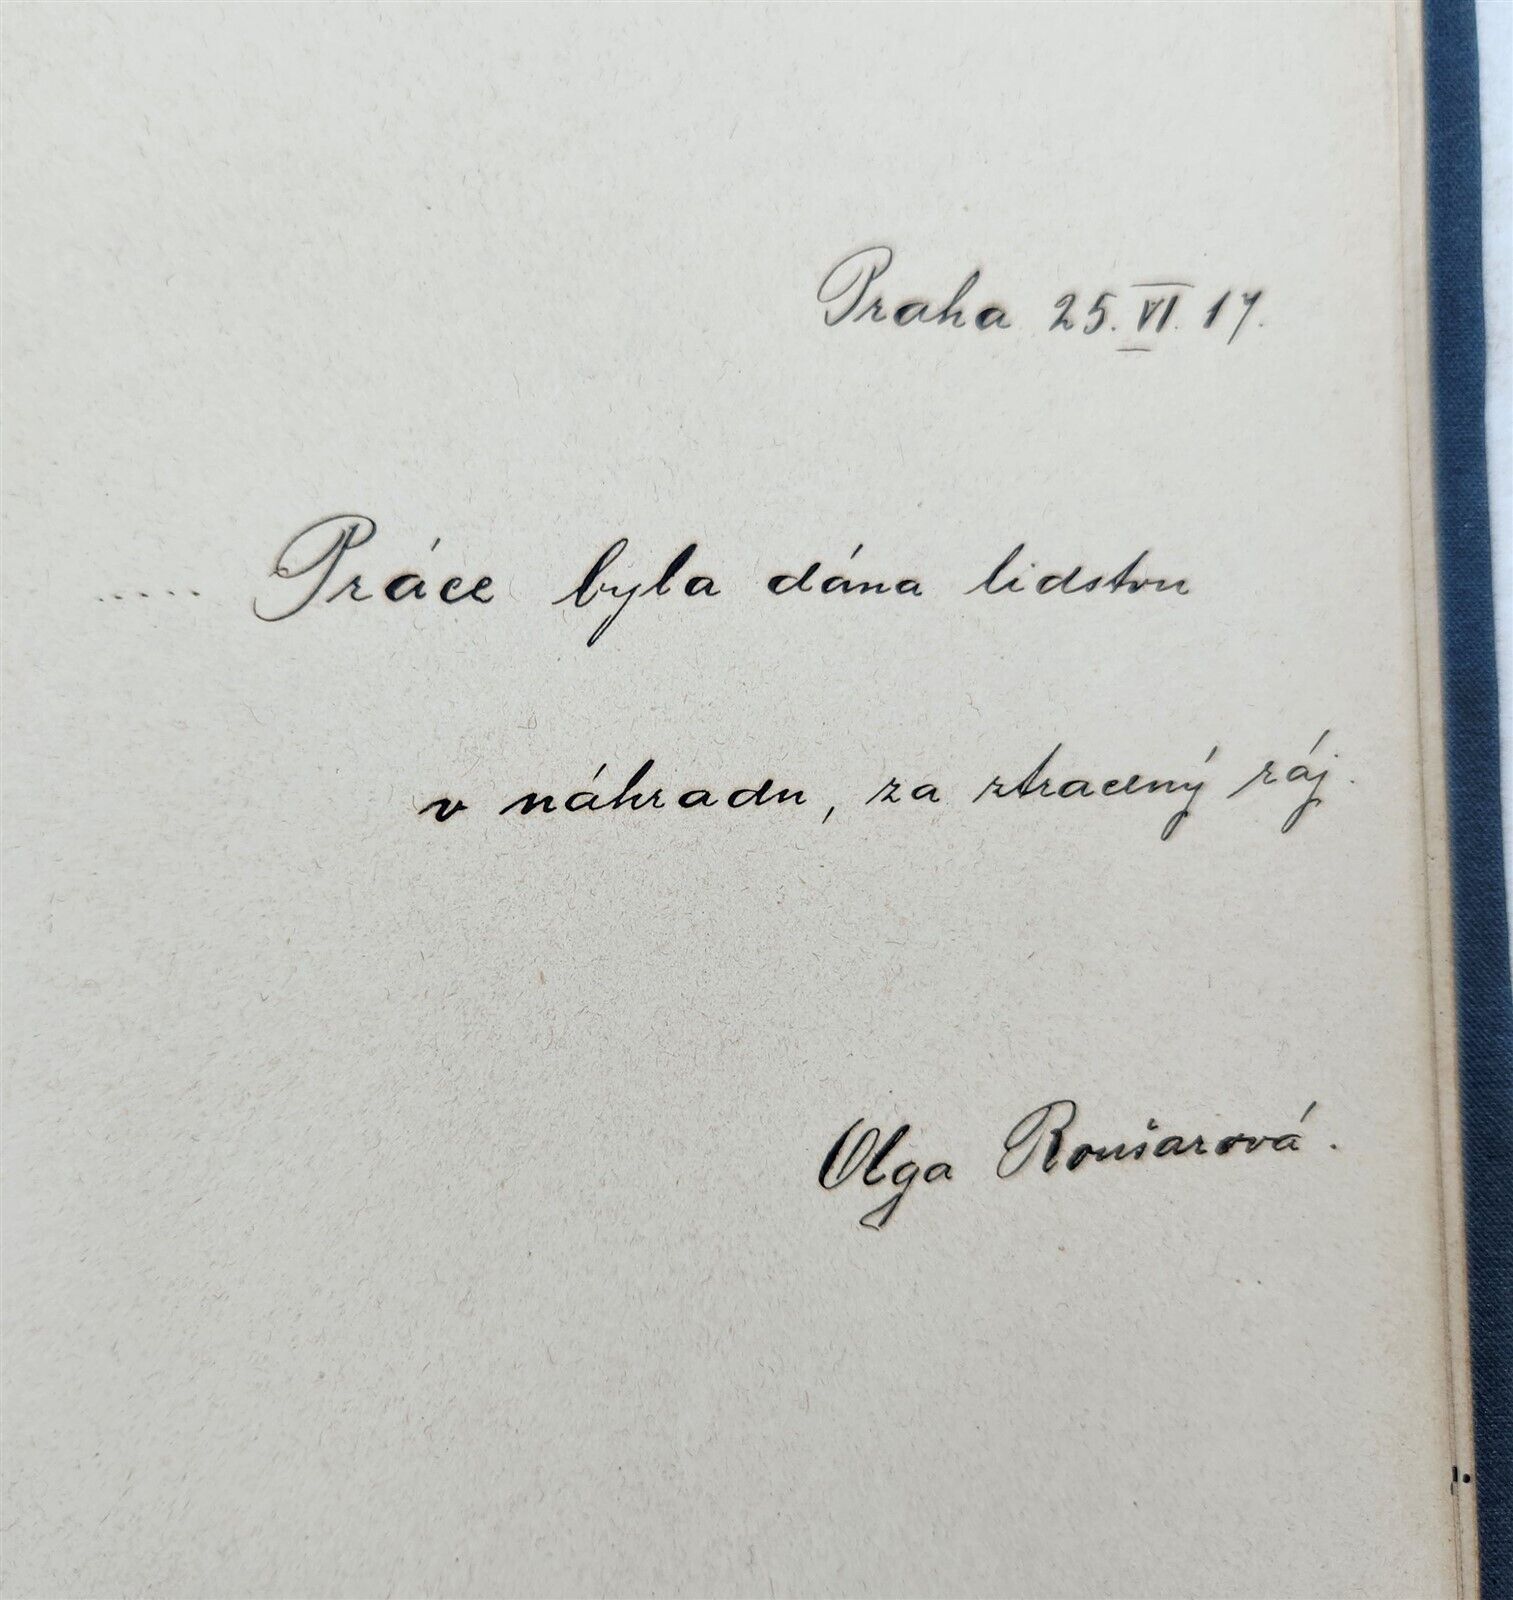 Praha 25. VI. 17.
..... Práce byla dána lidstvu
v náhradu, za ztracený ráj.
Olga Roušarová.